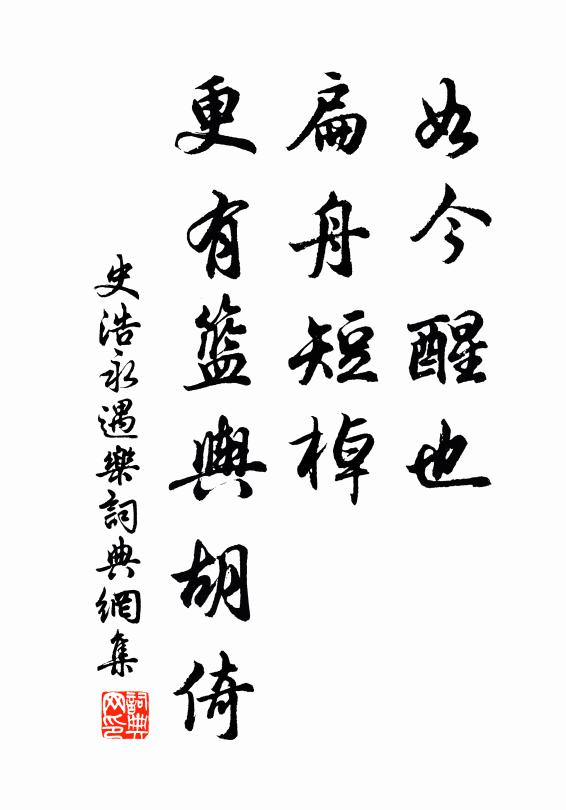 如今醒也
扁舟短棹
更有籃輿胡倚
史浩永遇樂詞典網集
詞典网印